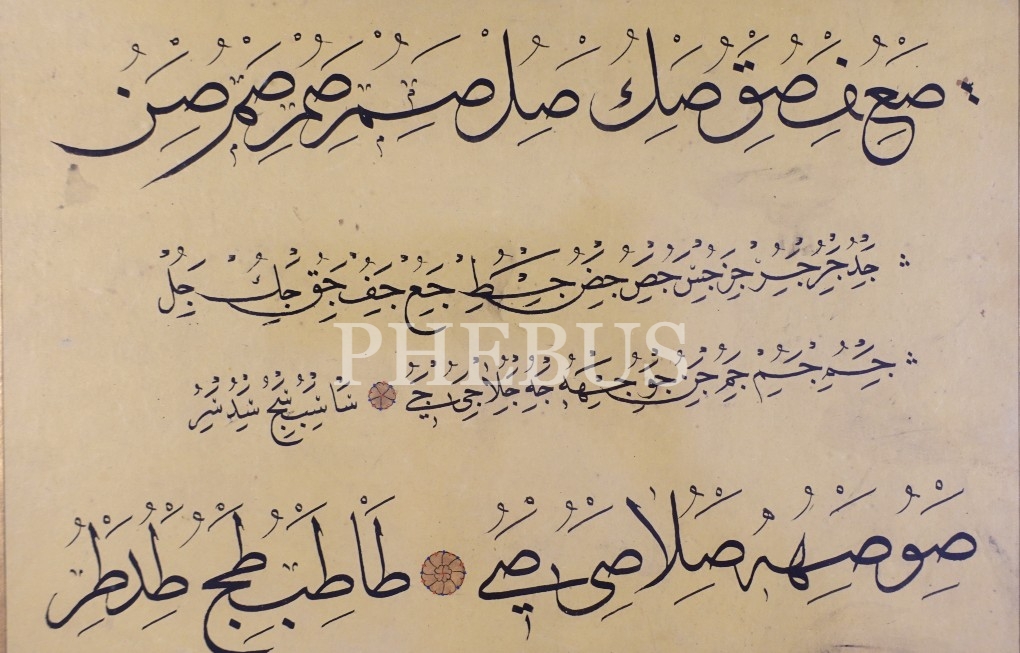 صع صف صق صك صل صم صم صم صن
جد جر جر جز جس جص جض جط جع جف جق جك جل
PHEBUS
جم جم جم جن جو جهه جه جلا جى جے سا سب سج سد سر
صو صهه صلا صى صے طا طب طج طد طر